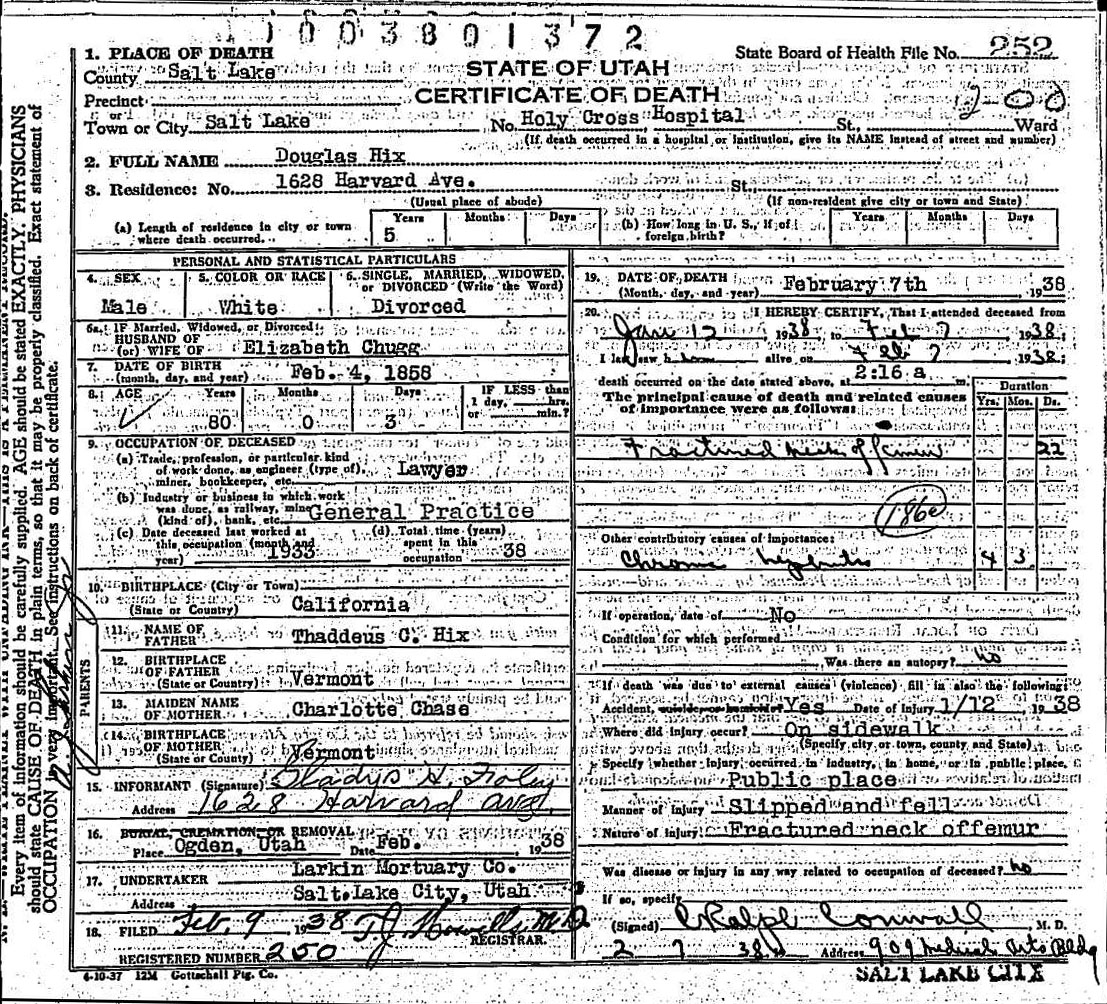 1003801372
1. PLACE OF DEATH
State Board of Health File No. 252
County Salt Lake
STATE OF UTAH
CERTIFICATE OF DEATH
Precinct
200
or
Town or City Salt Lake No. Holy Cross Hospital St., Ward
(If death occurred in a hospital or institution, give its NAME instead of street and number)
2. FULL NAME Douglas Hix
3. Residence: No. 1628 Harvard Ave. St.
(Usual place of abode) (If non-resident give city or town and State)
(a) Length of residence in city or town where death occurred. Years 5 Months Days
(b) How long in U. S., if of foreign birth? Years Months Days
PERSONAL AND STATISTICAL PARTICULARS
4. SEX Male
5. COLOR OR RACE White
6. SINGLE, MARRIED, WIDOWED, or DIVORCED (Write the Word) Divorced
6a. IF Married, Widowed, or Divorced
HUSBAND OF
(or) WIFE OF Elizabeth Chugg
7. DATE OF BIRTH
(month, day, and year) Feb. 4, 1858
8. AGE Years 80 Months 0 Days 3 IF LESS than 1 day, hrs. or min.?
9. OCCUPATION OF DECEASED
(a) Trade, profession, or particular kind
of work done, as engineer (type of), Lawyer
miner, bookkeeper, etc.
(b) Industry or business in which work
was done, as railway, mine General Practice
(kind of), bank, etc.
(c) Date deceased last worked at this occupation (month and year) 1933
(d) Total time (years) spent in this occupation 38
10. BIRTHPLACE (City or Town)
(State or Country) California
PARENTS
11. NAME OF FATHER Thaddeus C. Hix
12. BIRTHPLACE OF FATHER
(State or Country) Vermont
13. MAIDEN NAME OF MOTHER Charlotte Chase
14. BIRTHPLACE OF MOTHER
(State or Country) Vermont
15. INFORMANT (Signature) Gladys H. Foley
Address 1628 Harvard Ave
16. BURIAL, CREMATION, OR REMOVAL
Place Ogden, Utah Date Feb. 1938
17. UNDERTAKER Larkin Mortuary Co.
Address Salt Lake City, Utah
18. FILED Feb, 9 1938 T.J. Howells M.D.
REGISTRAR.
REGISTERED NUMBER 250
4-10-37 12M Gottschall Ptg. Co.
19. DATE OF DEATH
(Month, day, and year) February 7th 1938
20. I HEREBY CERTIFY, That I attended deceased from
Jan 12 1938, to Feb 7 1938
I last saw him alive on Feb 7 1938
death occurred on the date stated above, at 2:16 a m.
The principal cause of death and related causes
of importance were as follows:
Duration
Yrs. Mos. Ds.
Fractured neck of femur 22
186a
Other contributory causes of importance:
Chronic nephritis 4 3
If operation, date of No
Condition for which performed
Was there an autopsy? no
If death was due to external causes (violence) fill in also the following:
Accident, suicide or homicide? Yes Date of injury 1/12 1938
Where did injury occur? On sidewalk
(Specify city or town, county and State)
Specify whether injury occurred in industry, in home, or in public place,
Public place
Manner of Injury Slipped and fell
Nature of injury Fractured neck of femur
Was disease or injury in any way related to occupation of deceased? no
If so, specify
(Signed) C Ralph Cornwall M. D.
2 7 38 Address 909 Medical Arts Bldg
SALT LAKE CITY
Every item of information should be carefully supplied. AGE should be stated EXACTLY. PHYSICIANS
should state CAUSE OF DEATH in plain terms, so that it may be properly classified. Exact statement of
OCCUPATION is very important. See instructions on back of certificate.